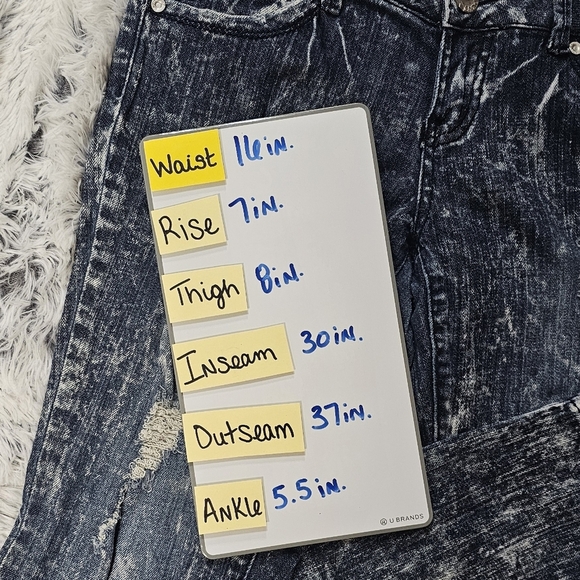 Waist 16in.
Rise 7in.
Thigh 8in.
Inseam 30in.
Outseam 37in.
Ankle 5.5in.
U BRANDS